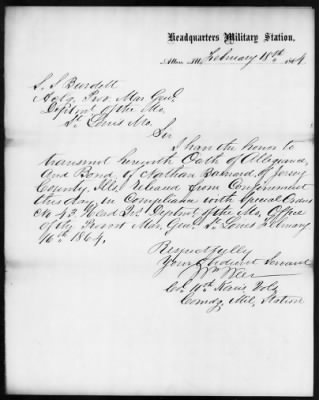 Headquarters Military Station.
Alton, Ills. February 18th 1864
S. S. Burdett
Actg. Prov. Mar Genl.
Deptmt of the Mo
St. Louis Mo.
Sir
I have the honor to
transmit herewith Oath of Allegiance
and Bond, of Nathan Barnard, of Jersey
County, Ills. Released from Confinement
this day in Compliance with Special Orders
No 43 Head Qrs Deptmt of the Mo, Office
of the Provost Mar. Genl. St. Louis February
16th 1864.
Respectfully
Your Obedient Servant
Wm Weer
Col. 10th Kansas Vols
Comdg. Mil. Station